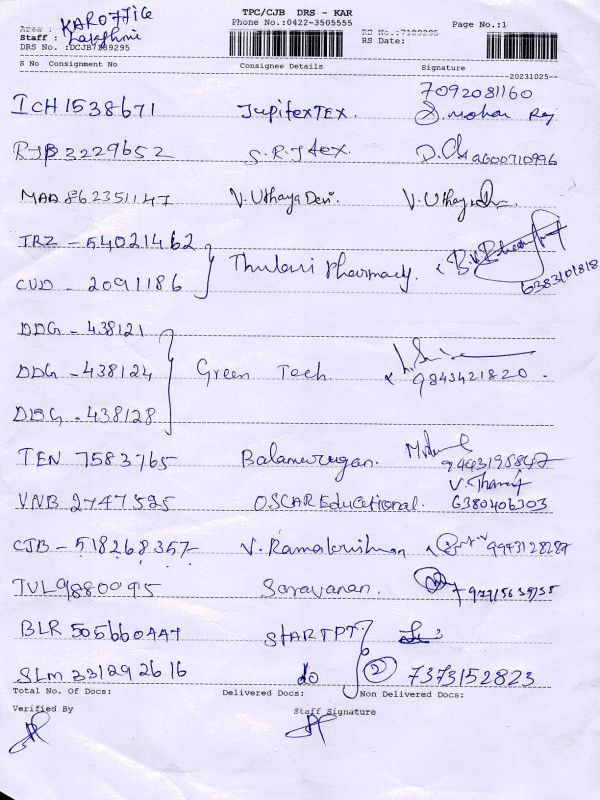 TPC/CJB DRS - KAR
Area : KAROFFICE
Phone No.:0422-3505555
Page No.:1
Staff :
RS No.:7189295
DRS No. :DCJB7189295
RS Date:
S No Consignment No Consignee Details Signature
20231025--
7092081160
ICH1538671 JupitexTEX. S. Mohan Raj
RJB3229652 S.R.J tex. 9600710996
MAA862351147 V. Uthaya Devi. V. Uthaya
TRZ - 54021462
Thulasi Pharmacy.
CUD - 2091186 6383101818
DDG - 438121
DDG - 438124 Green Tech. 9843421820.
DDG - 438128
TEN 7583765 Balamurugan. 9443195847
VNB 2747525 OSCAR Educational. 6380406303
CJB - 518268357 V. Ramakrishnan 9943128287
TVL9880095 Saravanan.
BLR 505660447 STARTPT
SLM 331292616 do 2 7373152823
Total No. Of Docs: Delivered Docs: Non Delivered Docs:
Verified By Staff Signature